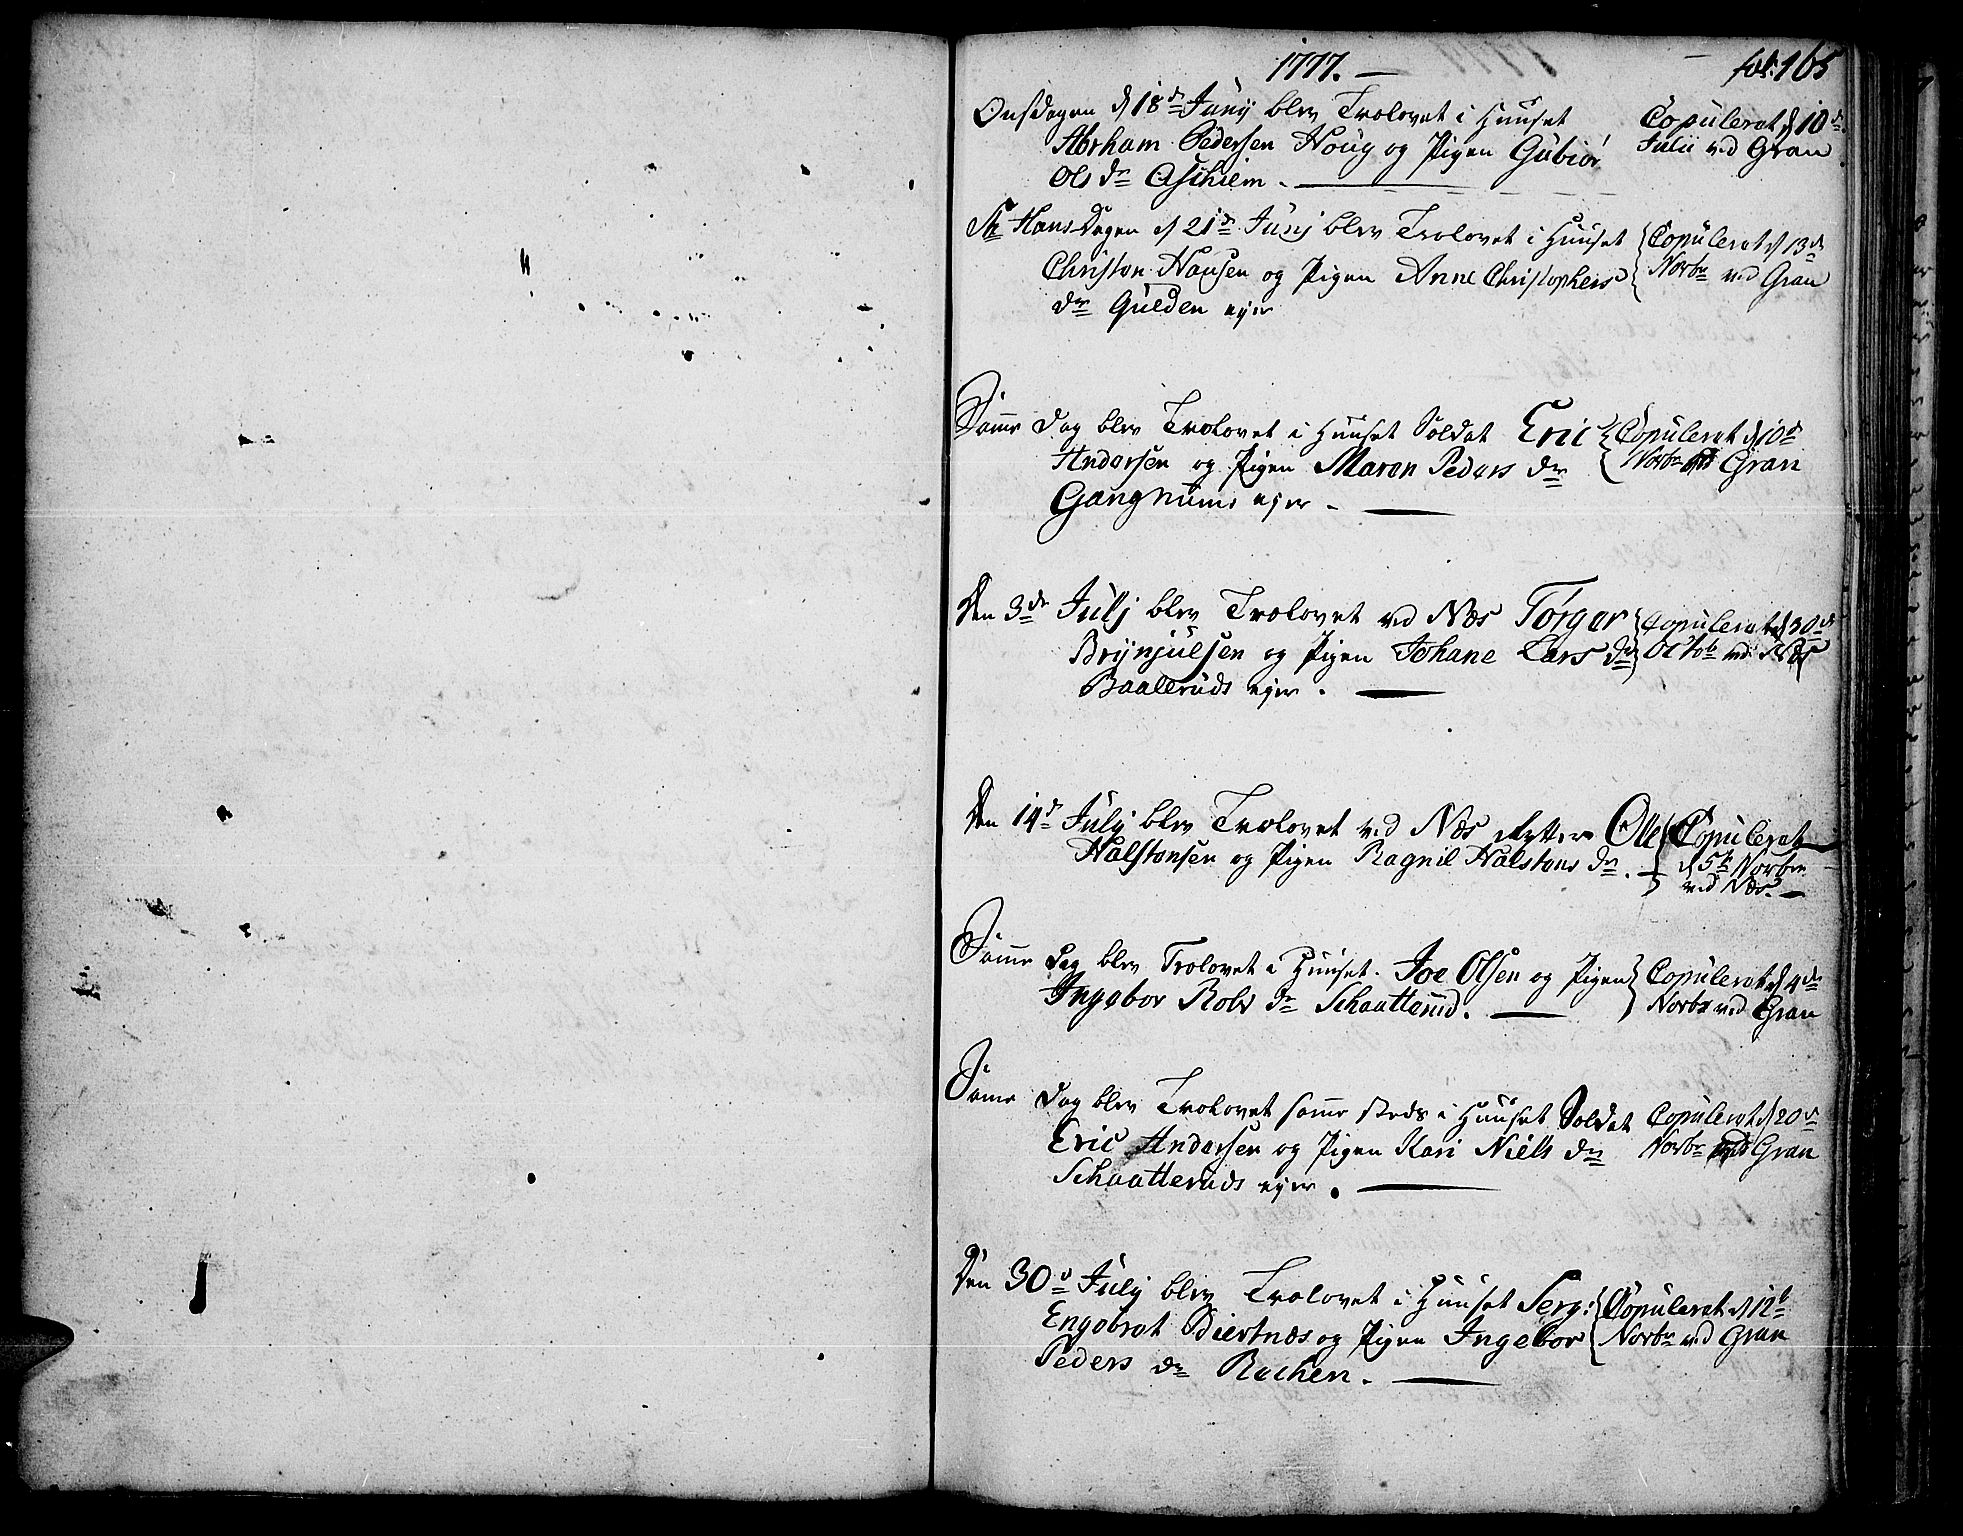 1777. —
fol: 165
Onsdagen d 18de Junij blev Trolovet i Huuset
Abrham Pedersen Houg og Pigen Gubiør
Ols dr Aschiem. —
Copuleret d 10de
Julii ved Gran
St Hans Dagen d 21de Junij blev Trolovet i Huuset
Christen Hansen og Pigen Anne Christophers
dr Gulden ejer
Copuleret d 13de
Novbr ved Gran
Samme Dag blev Trolovet i Huuset Soldat Eric
Andersen og Pigen Maren Peders dr
Gangnums ejer. —
Copuleret d 10d
Novbr ved Gran
Den 3de Julij blev Trolovet ved Næs Torger
Brijnjulsen og Pigen Johane Lars dr
Baaleruds ejer. —
Copuleret d 30de
Octob ved Næs
Den 14de Julij blev Trolovet ved Næs Rytter Ole
Halstensen og Pigen Ragnil Halstens dr. —
Copuleret
d 5te Novbr
ved Næs. —
Samme Dag blev Trolovet i Huuset. Joe Olsen og Pigen
Ingebor Rolv dr Schaatterud. —
Copuleret d 4de
Novbr ved Gran
Same Dag blev Trolovet samme steds i Huuset Soldat
Eric Andersen og Pigen Kari Niels dr
Schaatteruds ejer. —
Copuleret d 20de
Novbr ved Gran
Den 30d Julij blev Trolovet i Huuset Serg:
Engebret Biertnæs og Pigen Ingebor
Peders dr Rachen. —
Copuleret d 12te
Novbr ved Gran